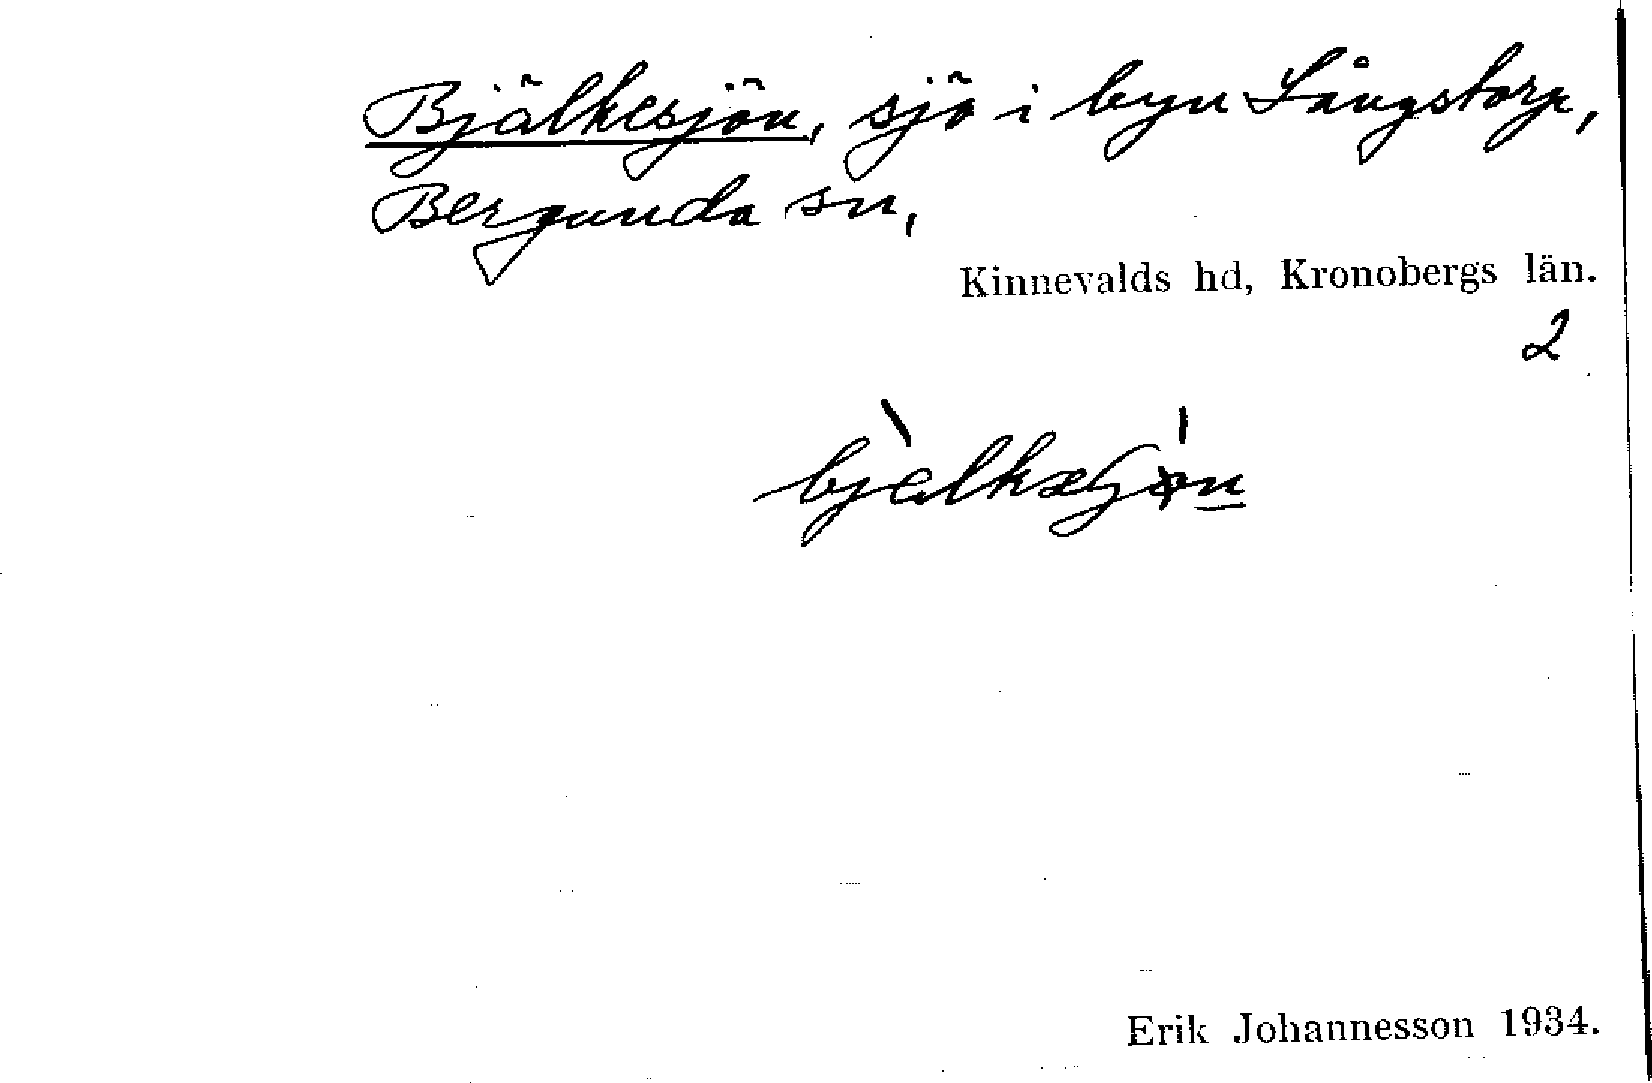 Bjälkesjön, sjö i byn Långstorp,
Bergunda sn,
Kinnevalds hd, Kronobergs län.
2
Erik Johannesson 1934.